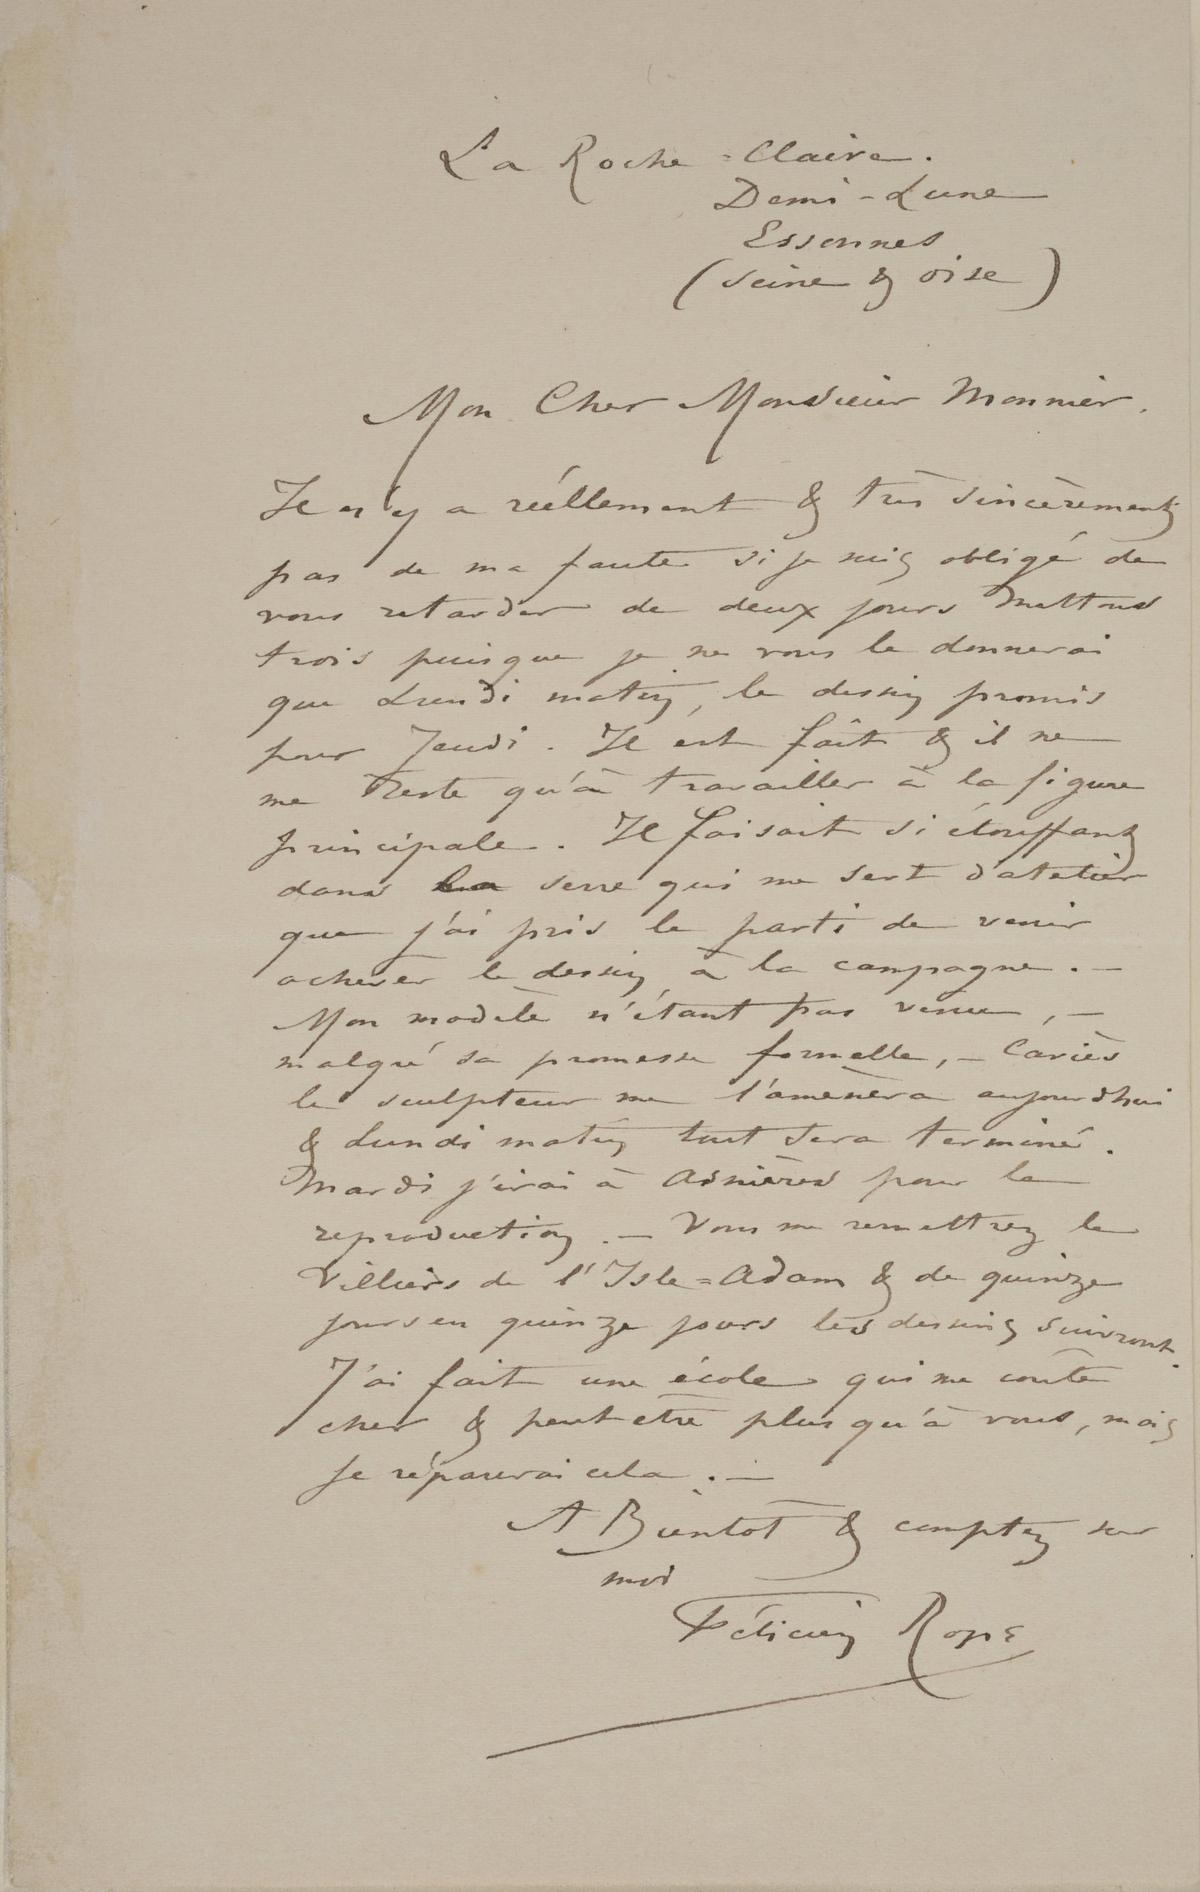 La Roche=Claire.
Demi-Lune
Essonnes
(Seine & Oise)
Mon Cher Monsieur Monnier.
Il n'y a réellement & très sincèrement
pas de ma faute si je suis obligé de
vous retarder de deux jours mettons
trois puisque je ne vous le donnerai
que Lundi matin, le dessin promis
pour Jeudi. Il est fait & il ne
me reste qu'à travailler à la figure
principale. Il faisait si étouffant
dans la serre qui me sert d'atelier
que j'ai pris le parti de venir
achever le dessin à la campagne. —
Mon modèle n'étant pas venu, —
malgré sa promesse formelle, — Cariès
le sculpteur me l'amènera aujourdhui
& Lundi matin tout sera terminé.
Mardi j'irai à Asnières pour la
reproduction. — Vous me remettrez le
Villiers de l'Isle=Adam & de quinze
jours en quinze jours les dessins suivront.
J'ai fait une école qui me coûte
cher & peut etre plus qu'à vous, mais
je réparerai cela. —
A Bientôt & comptez sur
moi
Félicien Rops